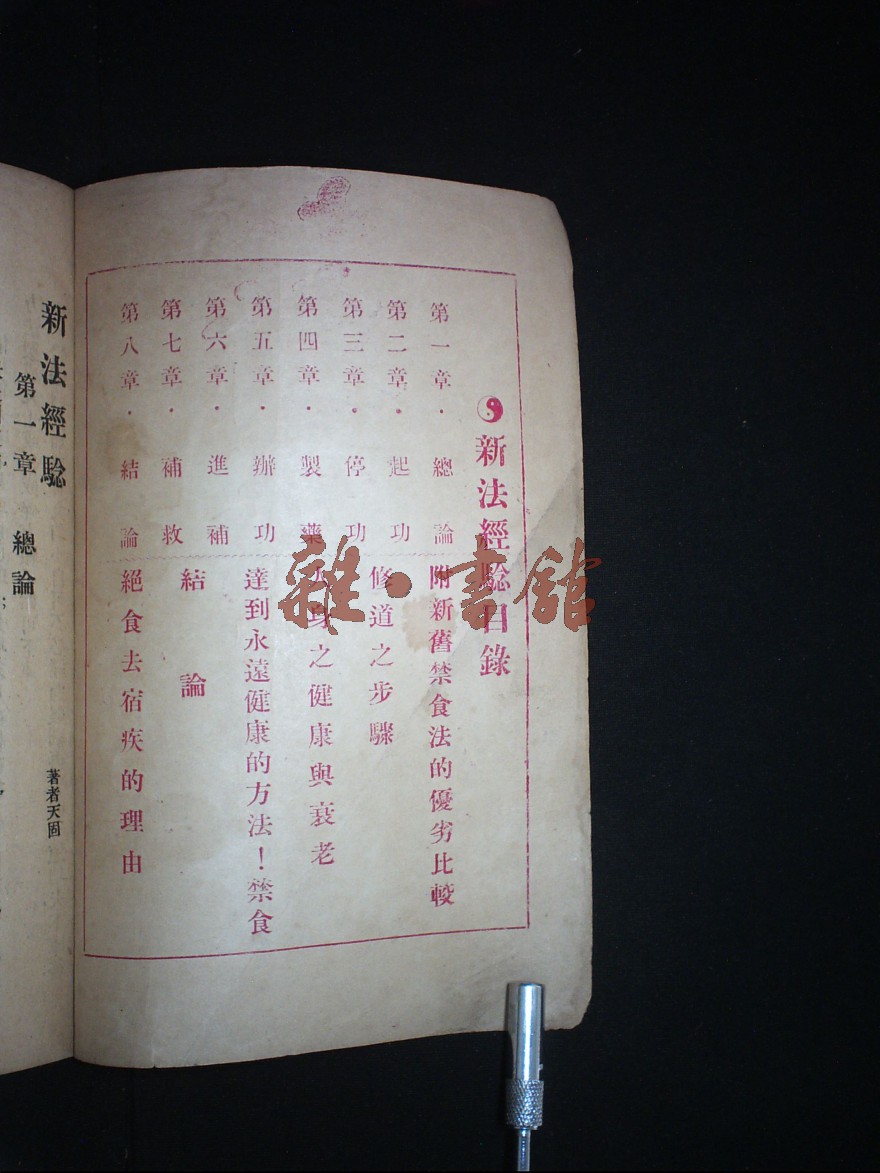 新法經驗目錄
第一章・總論
第二章・起功
第三章・停功
第四章・製藥
第五章・辦功
第六章・進補
第七章・補救
第八章・結論
附新舊禁食法的優劣比較
修道之步驟
人身之健康與衰老
達到永遠健康的方法！禁食
結論
絕食去宿疾的理由
新法經驗
第一章 總論
著者天固
雜・書館